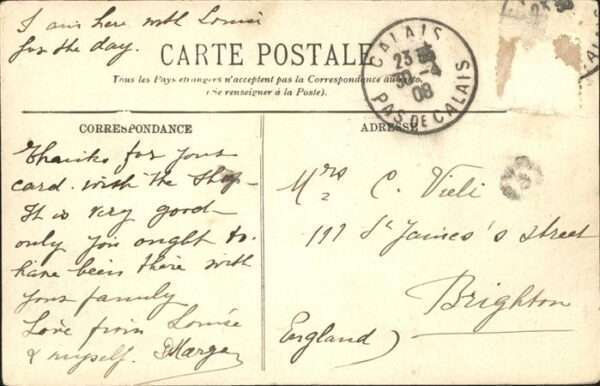 I am here with Louise
for the day.
CARTE POSTALE
Tous les Pays etrangers n'acceptent pas la Correspondance au recto.
(Se renseigner à la Poste).
CALAIS
23
30-4
08
PAS DE CALAIS
23 30
CORRESPONDANCE
Thanks for your
card. with the Shop
It is very good
only you ought to
have been there with
your family
Love from Louise
& myself. Marge
ADRESSE
Mrs C. Vieli
111 St James's street
Brighton
England